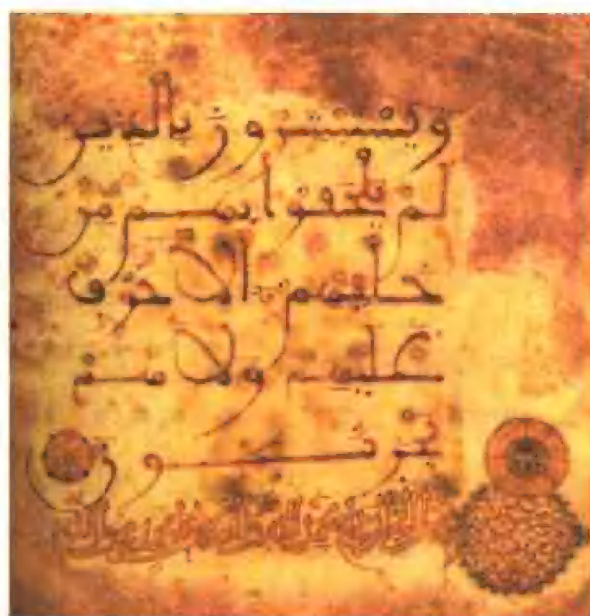 ويستبشرون بالذين
لم يلحقوا بهم من
خلفهم الا خوف
عليهم ولا هم
يحزنون